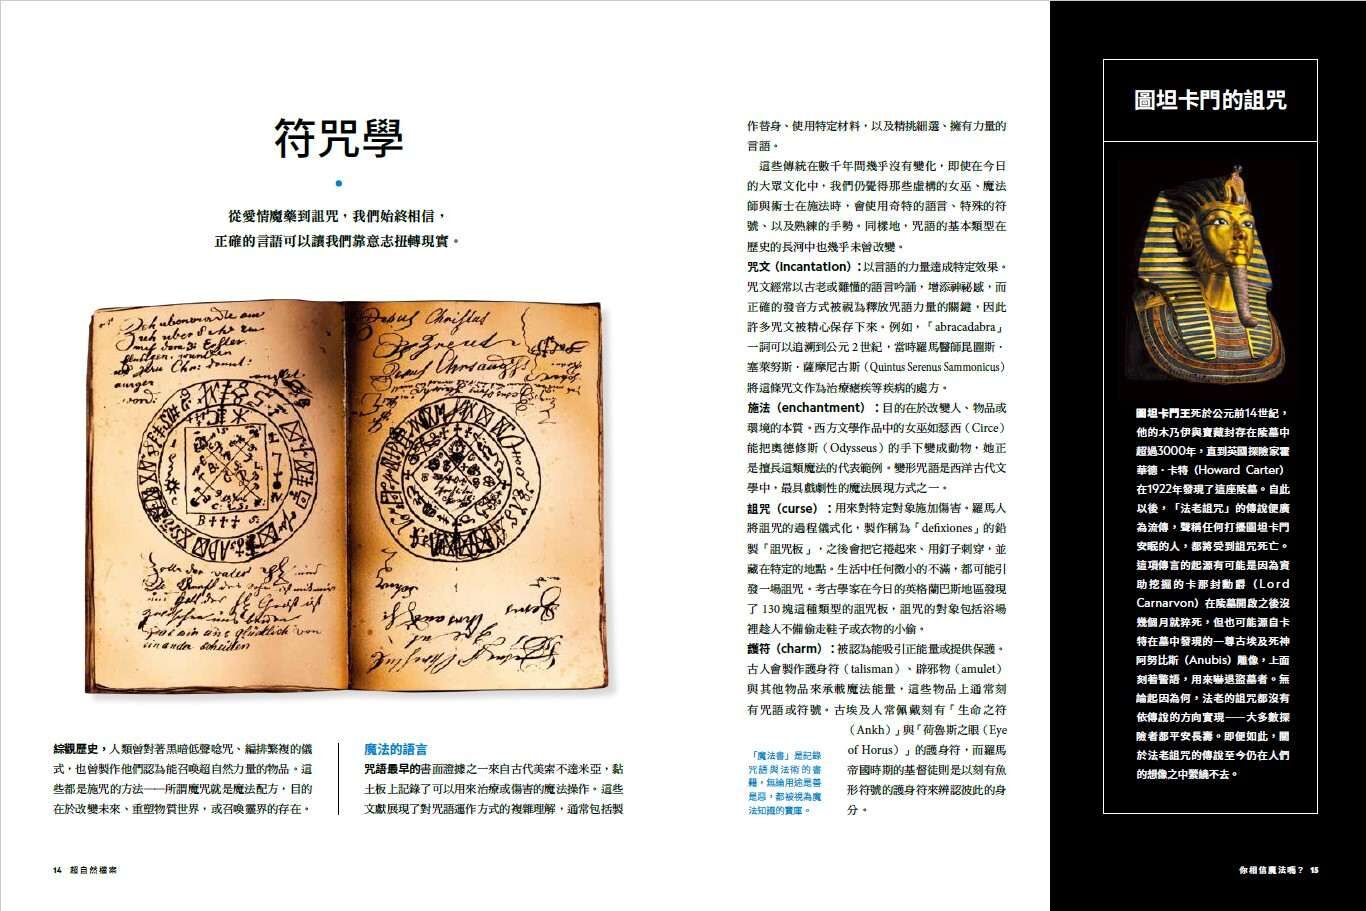 符咒學
從愛情魔藥到詛咒，我們始終相信，
正確的言語可以讓我們靠意志扭轉現實。
綜觀歷史，人類曾對著黑暗低聲唸咒、編排繁複的儀
式，也曾製作他們認為能召喚超自然力量的物品。這
些都是施咒的方法——所謂魔咒就是魔法配方，目的
在於改變未來、重塑物質世界，或召喚靈界的存在。
魔法的語言
咒語最早的書面證據之一來自古代美索不達米亞，黏
土板上記錄了可以用來治療或傷害的魔法操作。這些
文獻展現了對咒語運作方式的複雜理解，通常包括製
14 超自然檔案
作替身、使用特定材料，以及精挑細選、擁有力量的
言語。
這些傳統在數千年間幾乎沒有變化，即使在今日
的大眾文化中，我們仍覺得那些虛構的女巫、魔法
師與術士在施法時，會使用奇特的語言、特殊的符
號、以及熟練的手勢。同樣地，咒語的基本類型在
歷史的長河中也幾乎未曾改變。
咒文（incantation）：以言語的力量達成特定效果。
咒文經常以古老或難懂的語言吟誦，增添神祕感，而
正確的發音方式被視為釋放咒語力量的關鍵，因此
許多咒文被精心保存下來。例如，「abracadabra」
一詞可以追溯到公元 2 世紀，當時羅馬醫師昆圖斯．
塞萊努斯．薩摩尼古斯（Quintus Serenus Sammonicus）
將這條咒文作為治療瘧疾等疾病的處方。
施法（enchantment）：目的在於改變人、物品或
環境的本質。西方文學作品中的女巫如瑟西（Circe）
能把奧德修斯（Odysseus）的手下變成動物，她正
是擅長這類魔法的代表範例。變形咒語是西洋古代文
學中，最具戲劇性的魔法展現方式之一。
詛咒（curse）：用來對特定對象施加傷害。羅馬人
將詛咒的過程儀式化，製作稱為「defixiones」的鉛
製「詛咒板」，之後會把它捲起來、用釘子刺穿，並
藏在特定的地點。生活中任何微小的不滿，都可能引
發一場詛咒。考古學家在今日的英格蘭巴斯地區發現
了 130 塊這種類型的詛咒板，詛咒的對象包括浴場
裡趁人不備偷走鞋子或衣物的小偷。
護符（charm）：被認為能吸引正能量或提供保護。
古人會製作護身符（talisman）、辟邪物（amulet）
與其他物品來承載魔法能量，這些物品上通常刻
有咒語或符號。古埃及人常佩戴刻有「生命之符
（Ankh）」與「荷魯斯之眼（Eye
of Horus）」的護身符，而羅馬
帝國時期的基督徒則是以刻有魚
形符號的護身符來辨認彼此的身
分。
「魔法書」是記錄
咒語與法術的書
籍，無論用途是善
是惡，都被視為魔
法知識的寶庫。
圖坦卡門的詛咒
圖坦卡門王死於公元前14世紀，
他的木乃伊與寶藏封存在陵墓中
超過3000年，直到英國探險家霍
華德．卡特（Howard Carter）
在1922年發現了這座陵墓。自此
以後，「法老詛咒」的傳說便廣
為流傳，聲稱任何打擾圖坦卡門
安眠的人，都將受到詛咒死亡。
這項傳言的起源有可能是因為資
助挖掘的卡那封勳爵（Lord
Carnarvon）在陵墓開啟之後沒
幾個月就猝死，但也可能源自卡
特在墓中發現的一尊古埃及死神
阿努比斯（Anubis）雕像，上面
刻著警語，用來嚇退盜墓者。無
論起因為何，法老的詛咒都沒有
依傳說的方向實現——大多數探
險者都平安長壽。即便如此，關
於法老詛咒的傳說至今仍在人們
的想像之中縈繞不去。
你相信魔法嗎？ 15